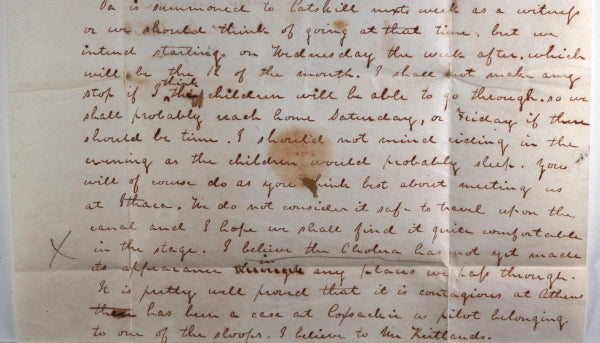 Pa is summoned to Catskill next week as a witness
or we should think of going at that time. but we
intend starting on Wednesday the week after, which
will be the 12 of the month. I shall not make any
stop if I think the children will be able to go through. so we
shall probably reach home Saturday, or Friday if there
should be time. I should not mind riding in the
evening as the children would probably sleep. You
will of course do as you think best about meeting us
at Ithaca. We do not consider it safe to travel upon the
canal and I hope we shall find it quite comfortable
X in the stage. I believe the Cholera has not yet made
its appearance in any places we pass through.
It is pretty well proved that it is contagious at Athens
there has been a case at Coxsackie a pilot belonging
to one of the sloops. I believe to Mr Kirtlands.